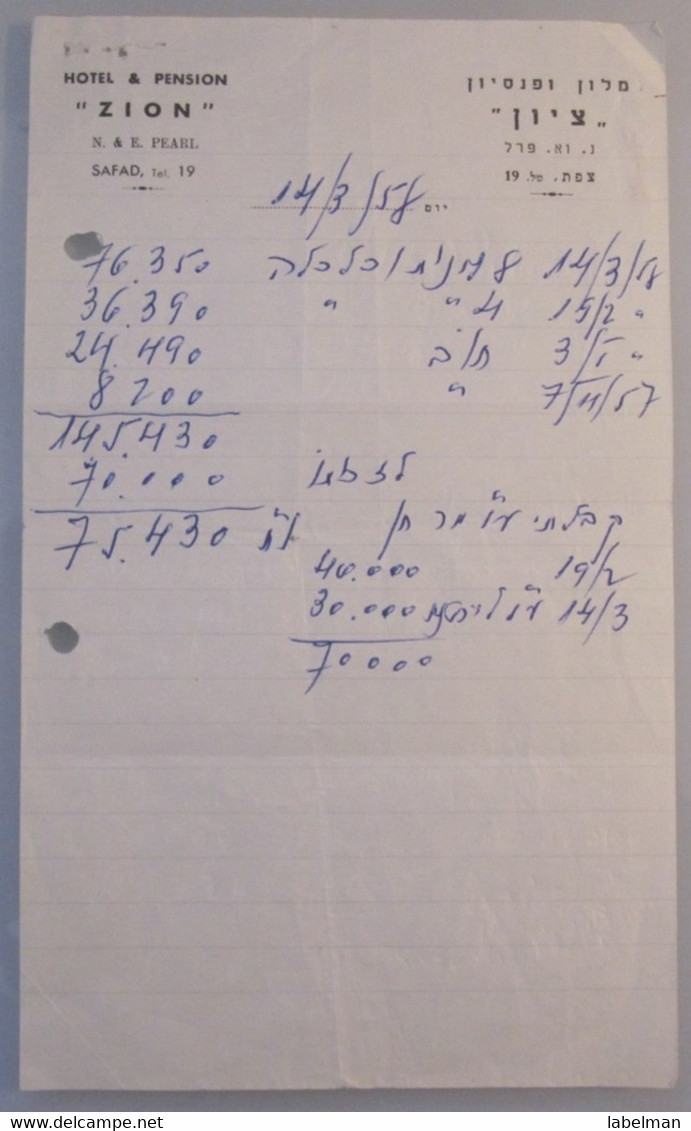 HOTEL & PENSION
"ZION"
N. & E. PEARL
SAFAD, Tel. 19
מלון ופנסיון
"ציון"
נ. וא. פרל
צפת, טל. 19
יום 14/3/58
14/3/58 8 וכלכלה 76.350
15/2 " 4 " " 36.390
3/1 " 24.490
7/4/57 " 8 200
145.430
70.000
75.430
קבלתי ע"י מר
19/2 40.000
14/3 ע"י 30.000
70000
www.delcampe.net
labelman